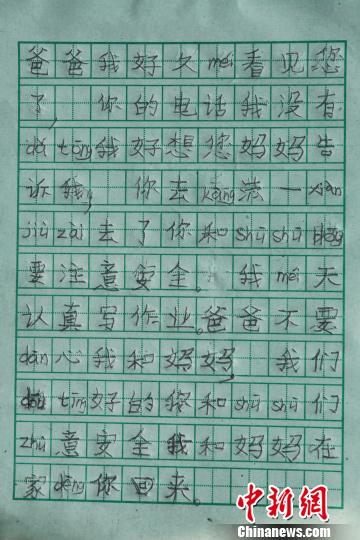 爸爸我好久mei看见您
了，你的电话我没有
dǎ tōng我好想您妈妈告
诉我，你去kàng洪一xiàn
jiù zāi去了你和shū shū
要注意安全。我mei天
认真写作业。爸爸不要
dān心我和妈妈，我们
tǐng好的你和shū shū们
zhù意安全我和妈妈在
家děng你回来。
中新网
www.chinanews.com